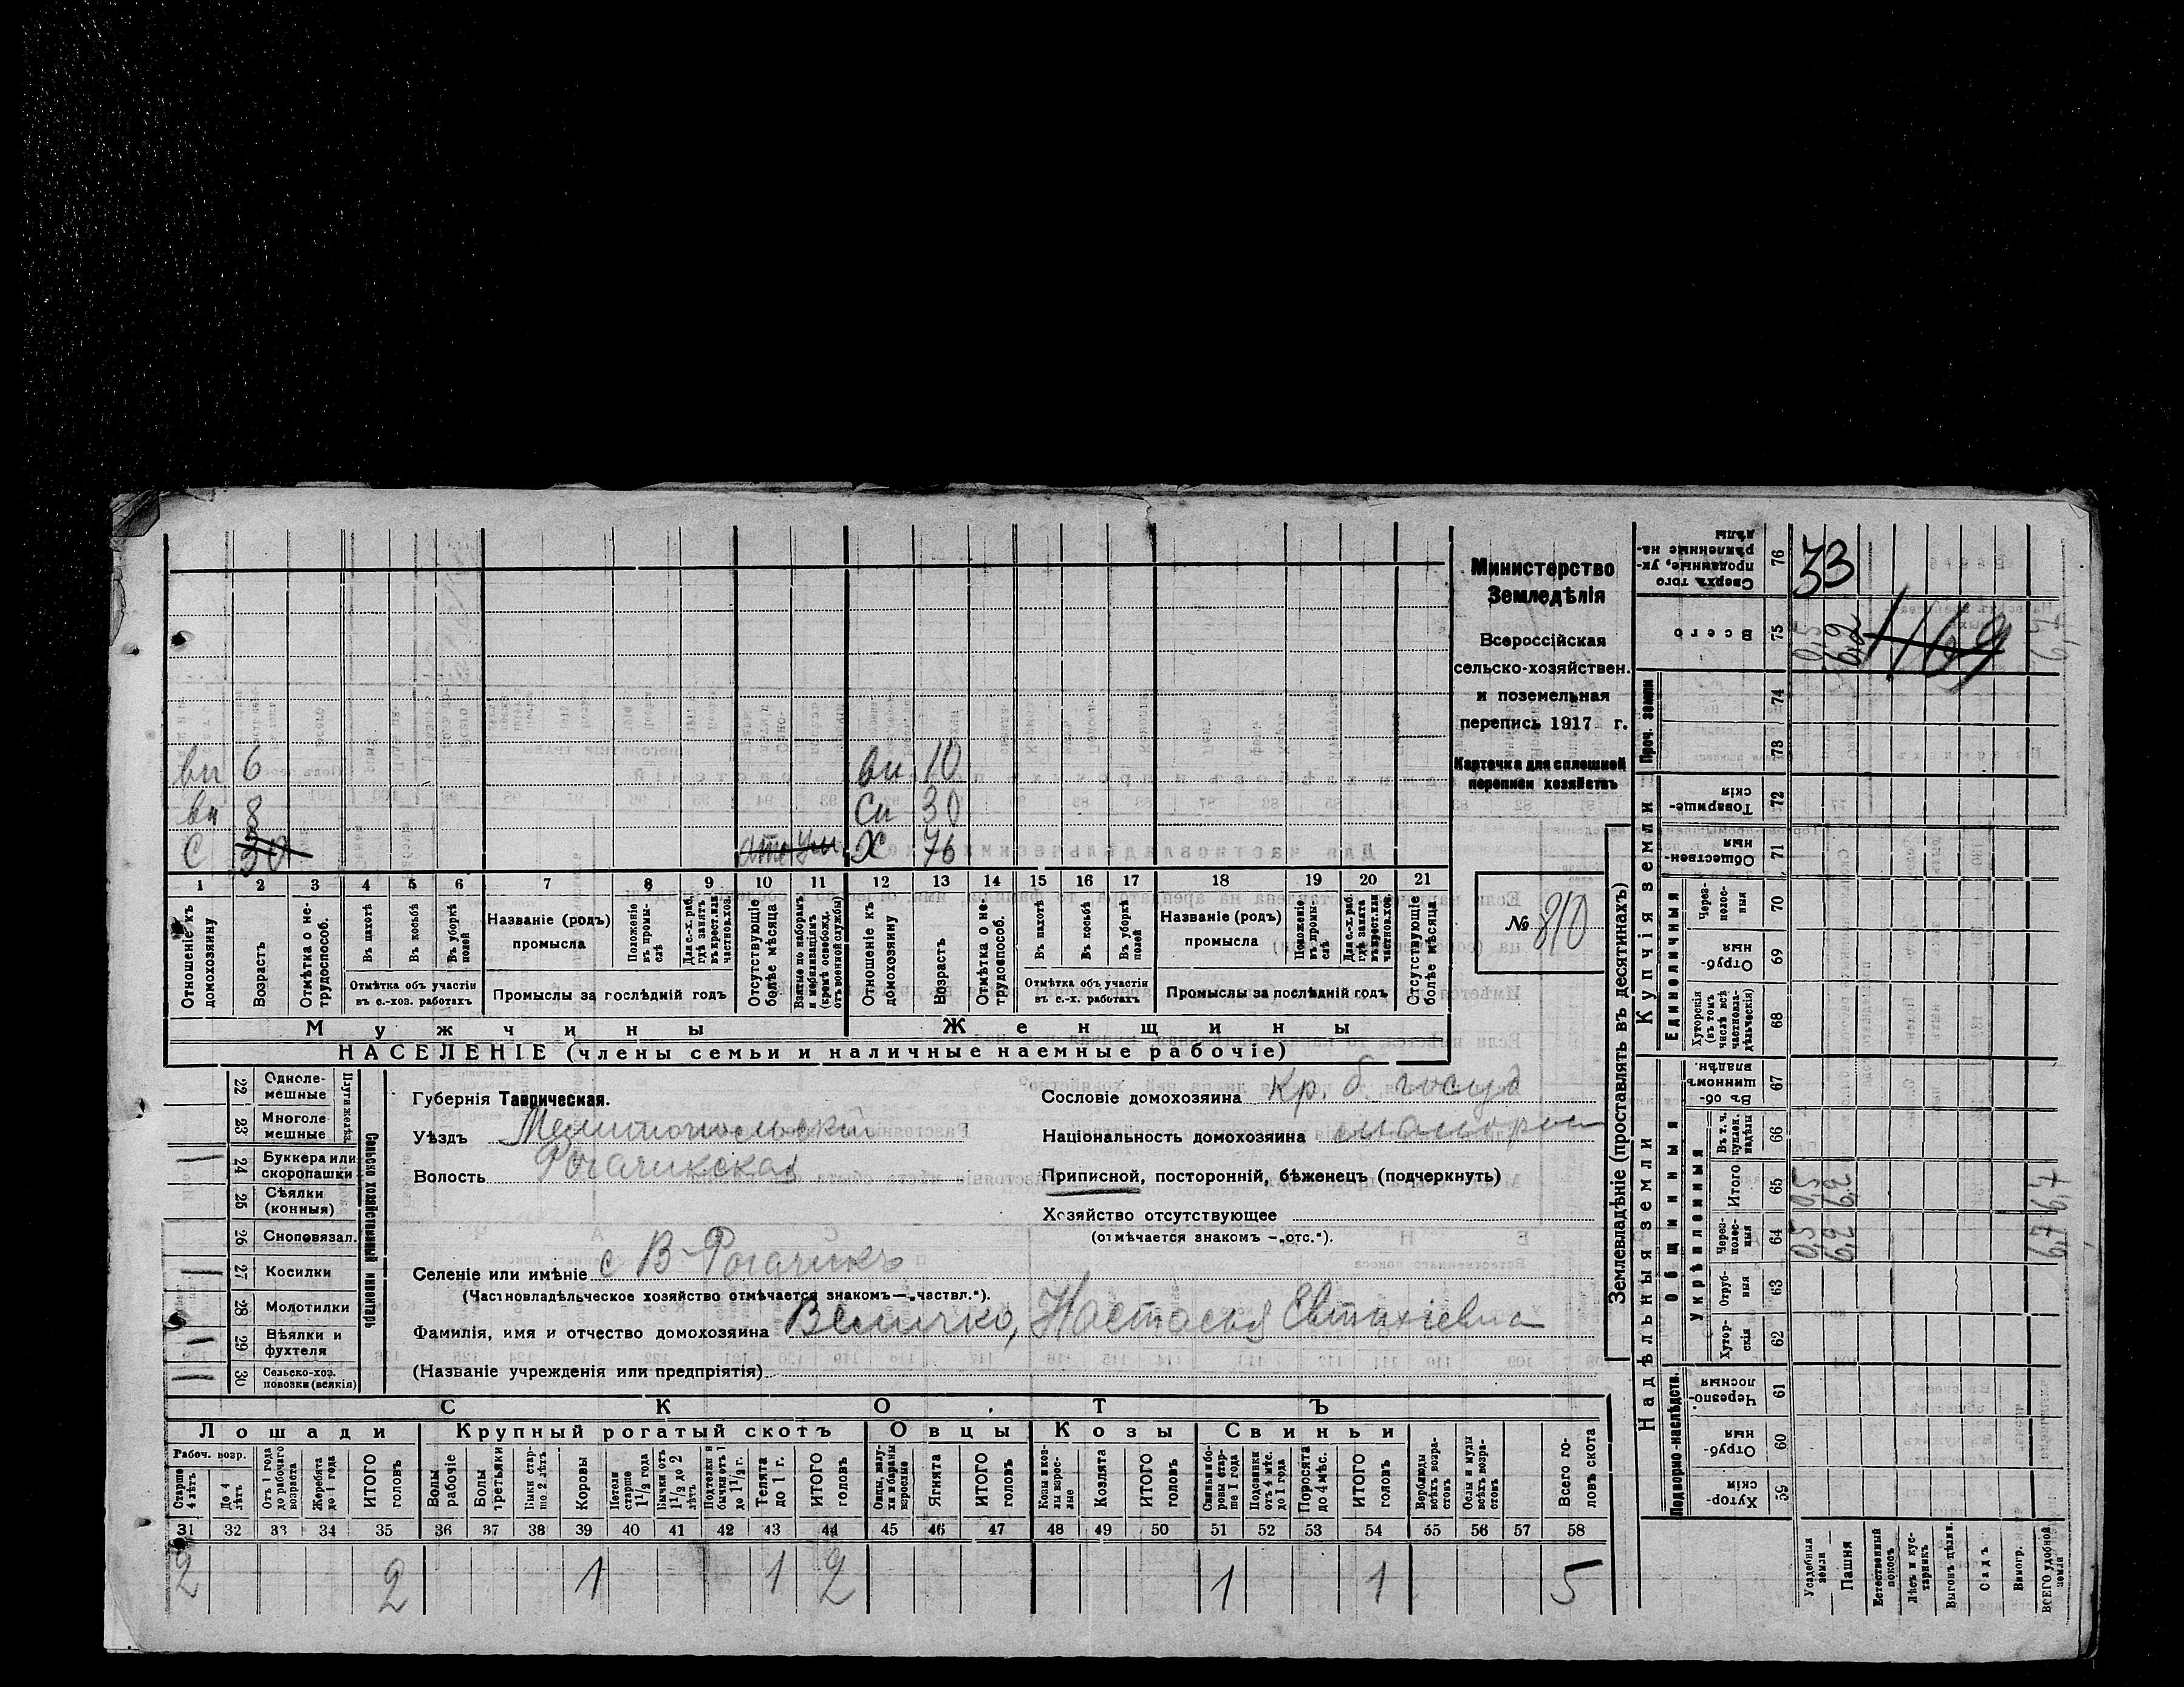 вн 6 вн 10
вн 8 Сн 30
С 30 Х 76
1 2 3 4 5 6 7 8 9 10 11 12 13 14 15 16 17 18 19 20 21
Отношеніе къ домохозяину
Возрастъ
Отмѣтка о нетрудоспособ.
Въ пахотѣ
Въ косьбѣ
Въ уборкѣ полей
Отмѣтка объ участіи въ с.-хоз. работахъ
Названіе (родъ) промысла
Положеніе въ промыслѣ
Для с.-х. раб. гдѣ занятъ въ крест. или частнов. хоз.
Промыслы за послѣдній годъ
Отсутствующіе болѣе мѣсяца
Взятые по наборамъ и мобилизаціямъ (кромѣ освобожд. отъ военной службы)
Отношеніе къ домохозяину
Возрастъ
Отмѣтка о нетрудоспособ.
Въ пахотѣ
Въ косьбѣ
Въ уборкѣ полей
Отмѣтка объ участіи въ с.-х. работахъ
Названіе (родъ) промысла
Положеніе въ промыслѣ
Для с.-х. раб. гдѣ занята въ крест. или частнов. хоз.
Промыслы за послѣдній годъ
Отсутствующіе болѣе мѣсяца
Мужчины
Женщины
НАСЕЛЕНІЕ (члены семьи и наличные наемные рабочіе)
Министерство
Земледѣлія
Всероссійская
сельско-хозяйствен.
и поземельная
перепись 1917 г.
Карточка для сплошной
переписи хозяйствъ
№ 810
22 Однолемешные
23 Многолемешные
24 Буккера или скоропашки
25 Сѣялки (конныя)
26 Сноповязал.
27 Косилки
28 Молотилки
29 Вѣялки и фухтеля
30 Сельско-хоз. повозки (всякія)
Плуги желѣз.
Сельско хозяйственный инвентарь
Губернія Таврическая.
Уѣздъ Мелитопольскій
Волость Рогачикская
Селеніе или имѣніе с В-Рогачикъ
(Частновладѣльческое хозяйство отмѣчается знакомъ—„частвл.“).
Фамилія, имя и отчество домохозяина Величко, Настасья Евтихіевна
(Названіе учрежденія или предпріятія)
Сословіе домохозяина Кр. б. госуд
Національность домохозяина малорос
Приписной, посторонній, бѣженецъ (подчеркнуть)
Хозяйство отсутствующее
(отмѣчается знакомъ —„отс.“).
СКОТЪ
Лошади
Крупный рогатый скотъ
Овцы
Козы
Свиньи
Рабоч. возр.
Старше 4 лѣтъ
До 4 лѣтъ
Отъ 1 года до рабочаго возраста
Жеребята до 1 года
ИТОГО головъ
Волы рабочіе
Волы третьяки
Быки старше 2 лѣтъ
Коровы
Нетели старше 1½ года
Бычки отъ 1½ до 2 лѣтъ
Подтелки и бычки отъ 1 до 1½ г.
Телята до 1 г.
ИТОГО головъ
Овцы, валухи и бараны взрослые
Ягнята
ИТОГО головъ
Козы и козлы взрослые
Козлята
ИТОГО головъ
Свиньи и боровы старше 1 года
Подсвинки отъ 4 мѣс. до 1 года
Поросята до 4 мѣс.
ИТОГО головъ
Верблюды всѣхъ возрастовъ
Ослы и мулы всѣхъ возрастовъ
Всего головъ скота
31 32 33 34 35 36 37 38 39 40 41 42 43 44 45 46 47 48 49 50 51 52 53 54 55 56 57 58
2 2 1 1 2 1 1 5
Землевладѣніе (проставлять въ десятинахъ)
Надѣльныя земли
Купчія земли
Проч. земли
Подворно-наслѣдств.
Общинныя
Укрѣпленныя
Единоличныя
76 Сверхъ того проданные, укрѣпленные надѣлы 33
75 Всего 1169
74
73
72 Товарищескія
71 Общественныя
70 Черезполосныя
69 Отрубныя
68 Хуторскія (въ томъ числѣ всѣ частновладѣльческія)
67 Въ общинномъ владѣн.
66 Въ т. ч. куплен. надѣлы
65 Итого
64 Черезполосныя
63 Отрубныя
62 Хуторскія
61 Черезполосныя
60 Отрубныя
59 Хуторскія
Усадебныя земли
Пашня
Естественный покосъ
Лѣсъ и кустарникъ
Выгонъ цѣлин.
Садъ
Виногр.
ВСЕГО удобной земли